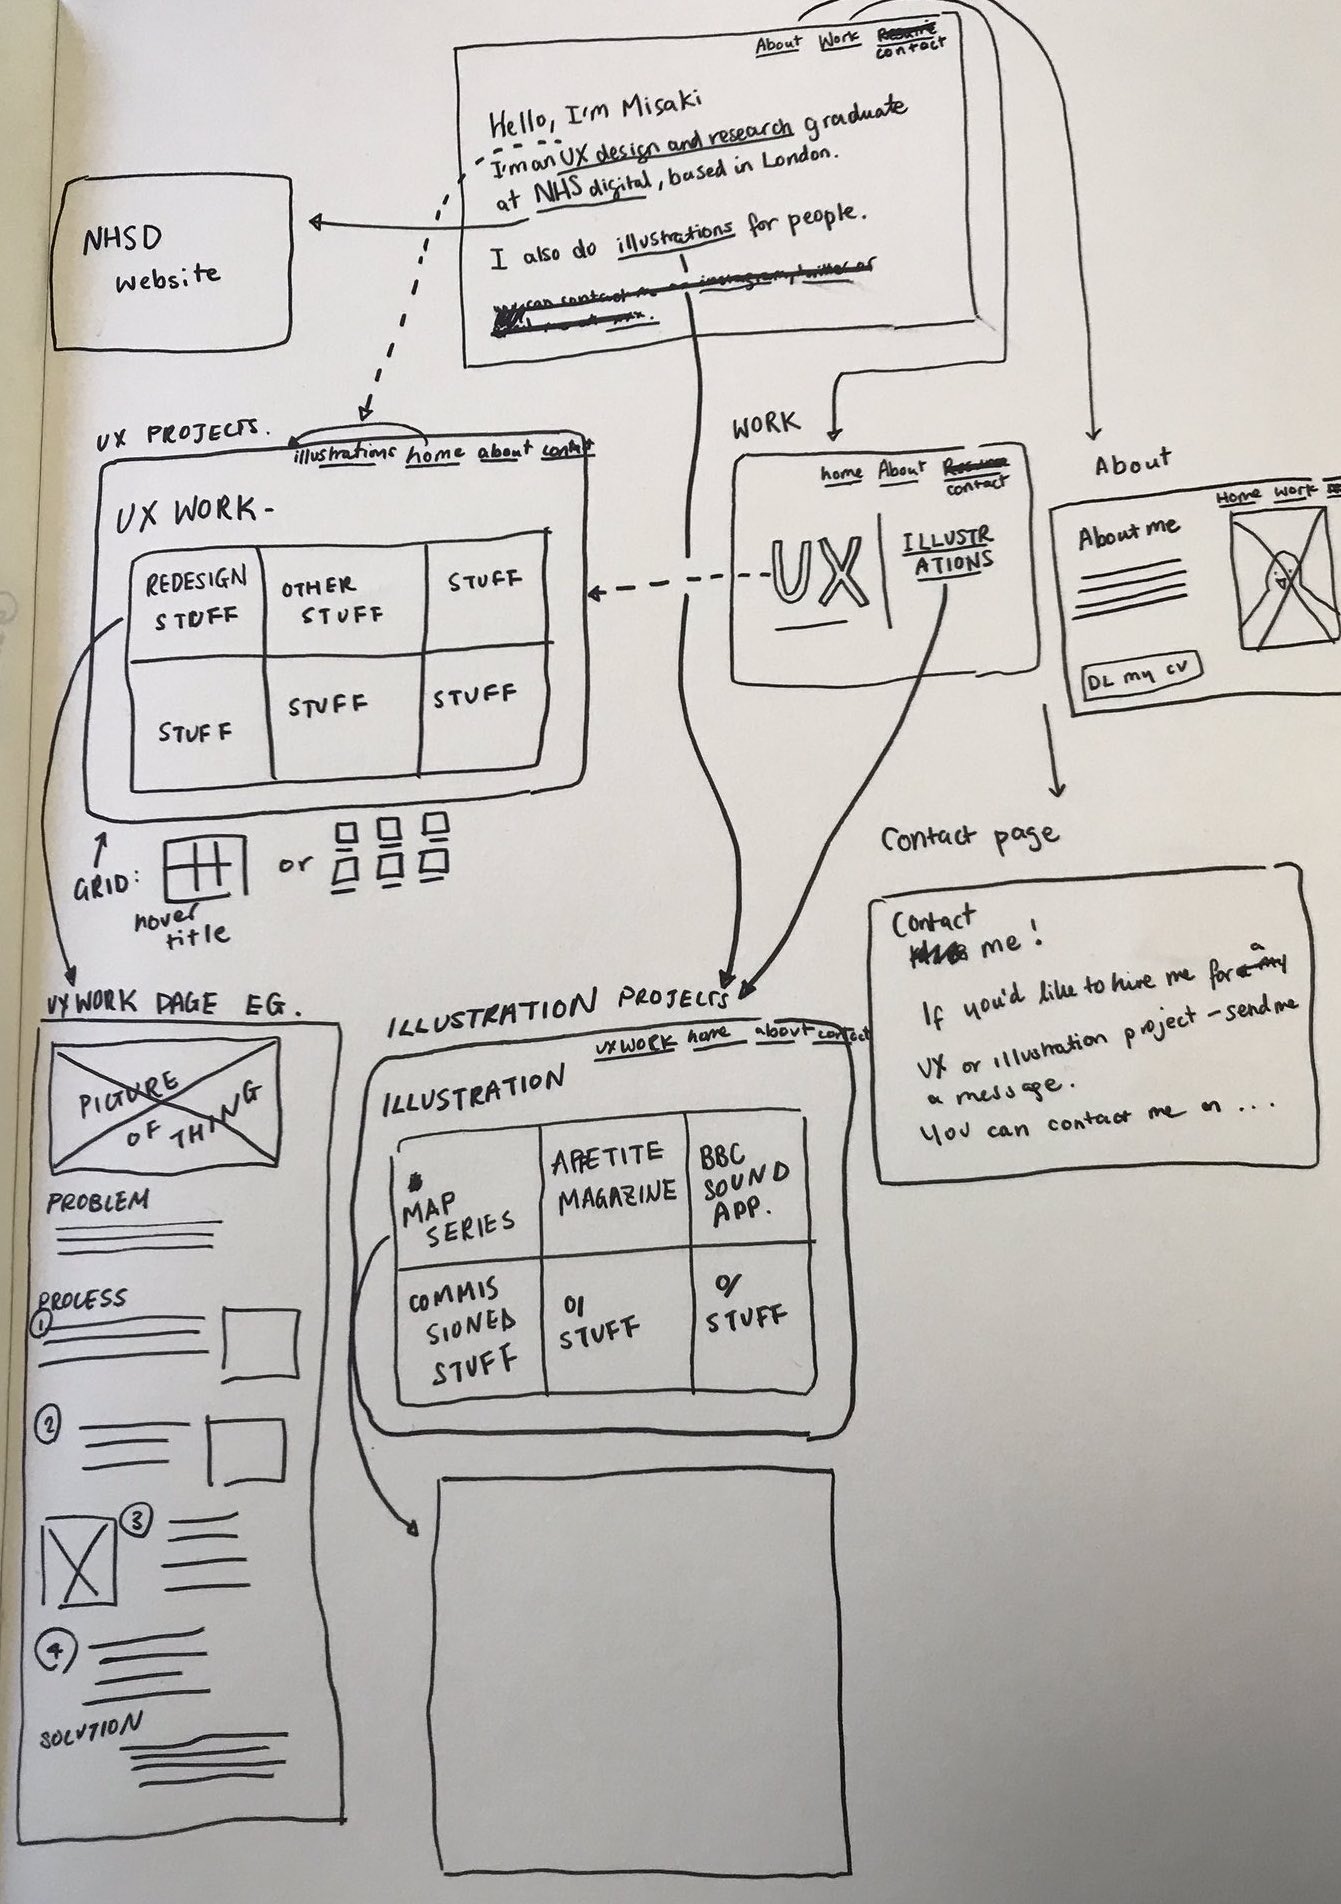 About Work Resume
contact
Hello, I'm Misaki
I'm an UX design and research graduate
at NHS digital, based in London.
I also do illustrations for people.
can contact me on instagram, twitter or
NHSD
website
UX PROJECTS.
illustrations home about contact
UX WORK-
REDESIGN
STUFF
OTHER
STUFF
STUFF
STUFF
STUFF
STUFF
GRID:
or
hover
title
WORK
home About Resume
contact
UX
ILLUSTR
ATIONS
About
Home Work
About me
DL my CV
Contact page
Contact
me!
If you'd like to hire me for a
UX or illustration project - send me
a message.
You can contact me on ...
UX WORK PAGE EG.
PICTURE
OF THING
PROBLEM
PROCESS
1
2
3
4
SOLUTION
ILLUSTRATION PROJECTS
UX WORK home about contact
ILLUSTRATION
MAP
SERIES
APETITE
MAGAZINE
BBC
SOUND
APP.
COMMIS
SIONED
STUFF
O/
STUFF
O/
STUFF